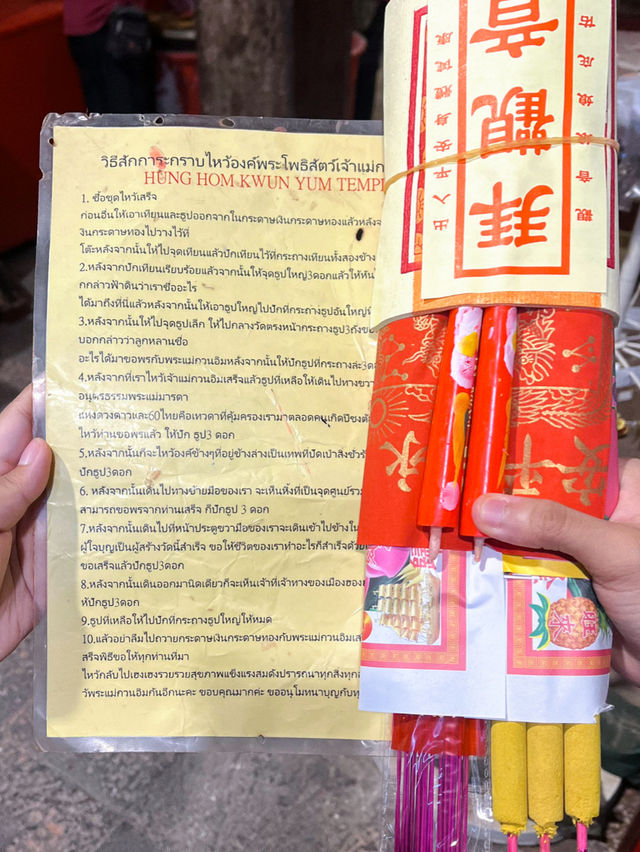 วิธีสักการะกราบไหว้องค์พระโพธิสัตว์เจ้าแม่ก
HUNG HOM KWUN YUM TEMPL
1. ซื้อชุดไหว้เสร็จ
ก่อนอื่นให้เอาเทียนและธูปออกจากในกระดาษเงินกระดาษทองแล้วหลังจ
เงินกระดาษทองไปวางไว้ที่
โต๊ะหลังจากนั้นให้ไปจุดเทียนแล้วปักเทียนไว้ที่กระถางเทียนทั้งสองข้าง
2.หลังจากปักเทียนเรียบร้อยแล้วจากนั้นให้จุดธูปใหญ่3ดอกแล้วให้หัน
กกล่าวฟ้าดินว่าเราชื่ออะไร
ได้มาถึงที่นี่แล้วหลังจากนั้นให้เอาธูปใหญ่ไปปักที่กระถางธูปอันใหญ่
3.หลังจากนั้นให้ไปจุดธูปเล็ก ให้ไปกลางวัดตรงหน้ากระถางธูป3ถังขอ
บอกกล่าวว่าลูกหลานชื่อ
อะไรได้มาขอพรกับพระแม่กวนอิมหลังจากนั้นให้ปักธูปที่กระถางละ3ด
4.หลังจากที่เราไหว้เจ้าแม่กวนอิมเสร็จแล้วธูปที่เหลือให้เดินไปทางขวา
อนุตรธรรมพระแม่มารดา
แห่งดวงดาวและ60ไทยคือเทวดาที่คุ้มครองเรามาตลอดคนเกิดปีชงต้
ไหว้ท่านขอพรแล้ว ให้ปัก ธูป3 ดอก
5.หลังจากนั้นก็จะไหว้องค์ข้างๆที่อยู่ข้างล่างเป็นเทพที่ปัดเป่าสิ่งชั่วร้
ปักธูป3ดอก
6. หลังจากนั้นเดินไปทางซ้ายมือของเรา จะเห็นหิ้งที่เป็นจุดศูนย์รวม
สามารถขอพรจากท่านเสร็จ ก็ปักธูป 3 ดอก
7.หลังจากนั้นเดินไปที่หน้าประตูขวามือของเราจะเดินเข้าไปข้างใน
ผู้ใจบุญเป็นผู้สร้างวัดนี้สำเร็จ ขอให้ชีวิตของเราทำอะไรก็สำเร็จด้วย
ขอเสร็จแล้วปักธูป3ดอก
8.หลังจากนั้นเดินออกมานิดเดียวก็จะเห็นเจ้าที่เจ้าทางของเมืองฮ่อง
ห้ปักธูป3ดอก
9.ธูปที่เหลือให้ไปปักที่กระถางธูปใหญ่ให้หมด
10.แล้วอย่าลืมไปถวายกระดาษเงินกระดาษทองกับพระแม่กวนอิม
สร็จพิธีขอให้ทุกท่านที่มา
ไหว้กลับไปเฮงเฮงรวยรวยสุขภาพแข็งแรงสมดังปรารถนาทุกสิ่งทุก
วัพระแม่กวนอิมกันอีกนะคะ ขอบคุณมากค่ะ ขออนุโมทนาบุญกับทุ
拜觀音
出入平安身體健康
觀音娘娘庇佑
永
平安